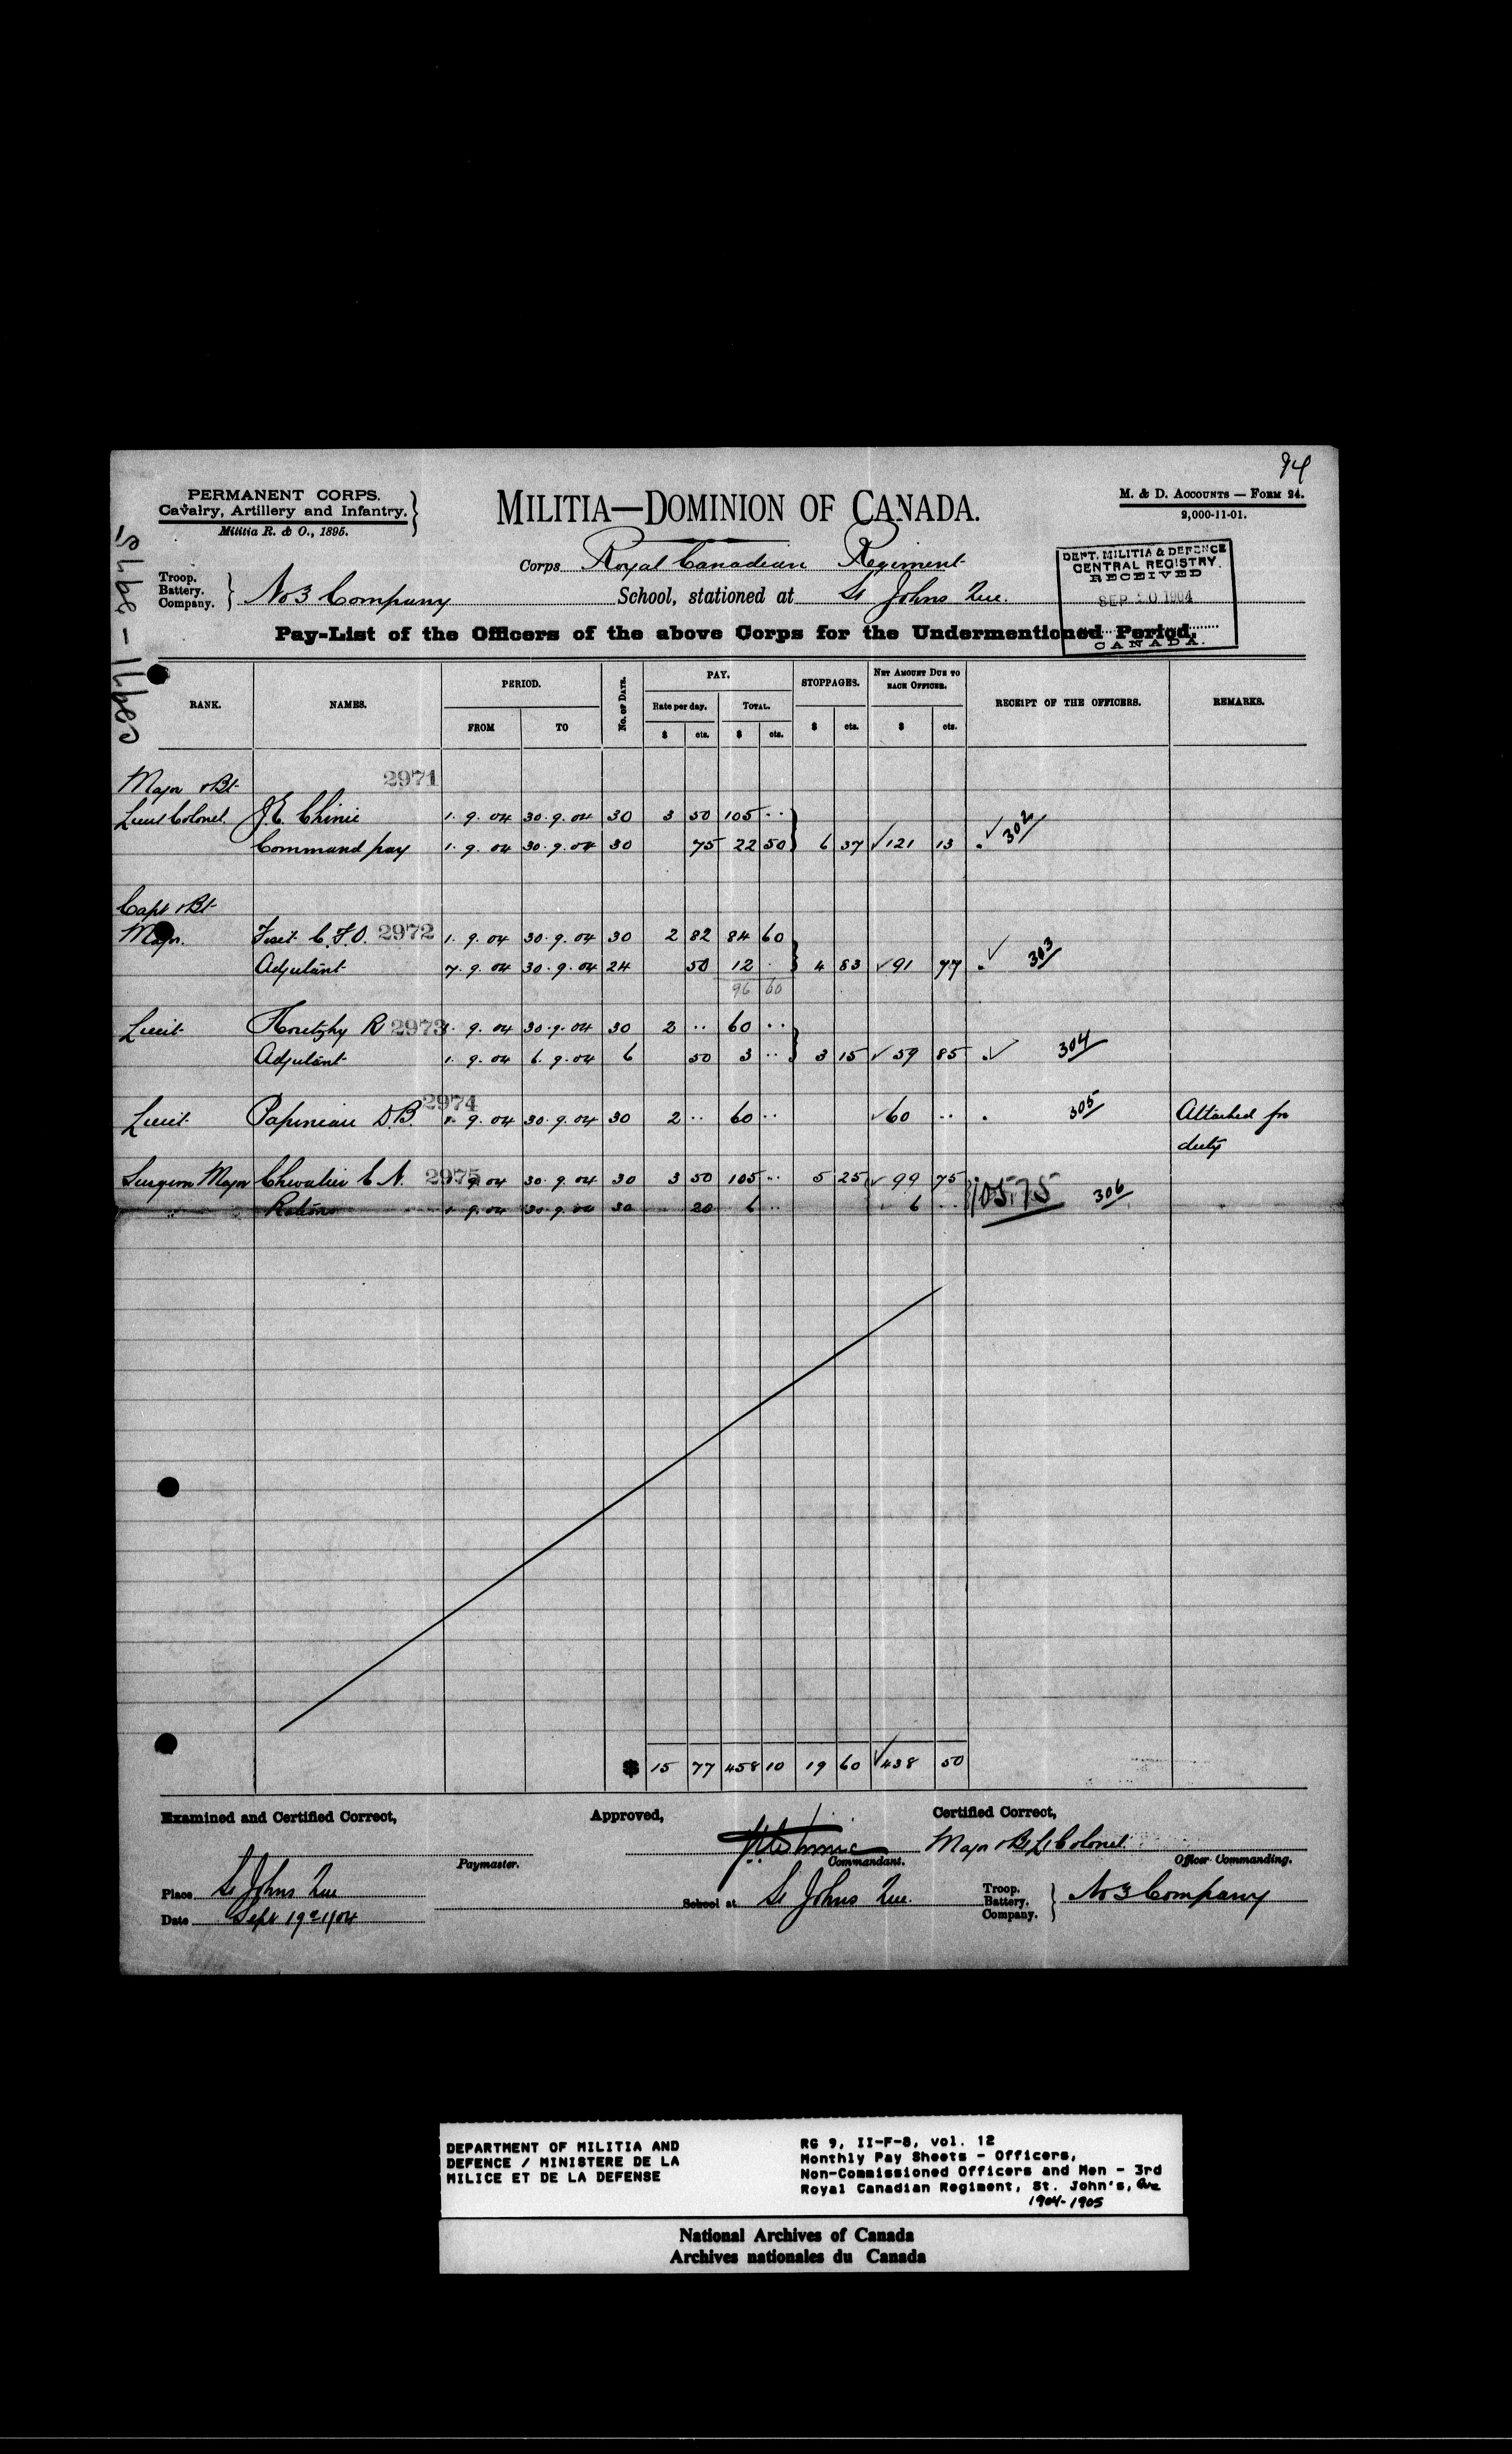 94
PERMANENT CORPS.
Cavalry, Artillery and Infantry.
Militia R. & O., 1895.
MILITIA—DOMINION OF CANADA.
M. & D. ACCOUNTS — FORM 24.
2,000-11-01.
Corps Royal Canadian Regiment
DEPT. MILITIA & DEFENCE
CENTRAL REGISTRY.
RECEIVED
SEP 20 1904
CANADA.
Troop. Battery. Company. } No 3 Company School, stationed at St Johns Que.
Pay-List of the Officers of the above Corps for the Undermentioned Period.
2971 - 2975
RANK. NAMES. PERIOD. FROM TO No. of Days. PAY. Rate per day. $ cts. TOTAL. $ cts. STOPPAGES. $ cts. NET AMOUNT DUE TO EACH OFFICER. $ cts. RECEIPT OF THE OFFICERS. REMARKS.
Major & Bt 2971
Lieut Colonel J.E. Chinic 1. 9. 04 30. 9. 04 30 3 50 105 ..
Command pay 1. 9. 04 30. 9. 04 30 75 22 50 6 37 √121 13 √ 302
Capt & Bt
Major. Fiset C.F.O. 2972 1. 9. 04 30. 9. 04 30 2 82 84 60
Adjutant 7. 9. 04 30. 9. 04 24 50 12 . 4 83 √91 77 √ 303
96 60
Lieut Koutzky R 2973 1. 9. 04 30. 9. 04 30 2 .. 60 ..
Adjutant 1. 9. 04 6. 9. 04 6 50 3 .. 3 15 √59 85 √ 304
Lieut Papineau D.B. 2974 1. 9. 04 30. 9. 04 30 2 .. 60 .. √60 .. 305 Attached for
duty
Surgeon Major Chevalier E N. 2975 1. 9. 04 30. 9. 04 30 3 50 105 .. 5 25 √99 75
Rations 1. 9. 04 30. 9. 04 30 20 6 .. 6 .. 105.75 306
$ 15 77 458 10 19 60 √438 50
Examined and Certified Correct, Approved, Certified Correct,
Major & Bt Lt Colonel
Paymaster. Commandant. Officer Commanding.
Place St Johns Que School at St Johns Que. Troop. Battery. Company. } No 3 Company
Date Sept 19th/04
DEPARTMENT OF MILITIA AND
DEFENCE / MINISTERE DE LA
MILICE ET DE LA DEFENSE
RG 9, II-F-8, vol. 12
Monthly Pay Sheets - Officers,
Non-Commissioned Officers and Men - 3rd
Royal Canadian Regiment, St. John's, Que
1904-1905
National Archives of Canada
Archives nationales du Canada